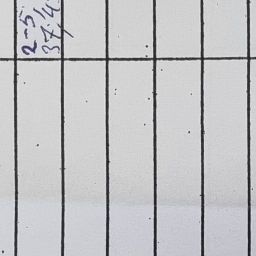 2-5
37,4